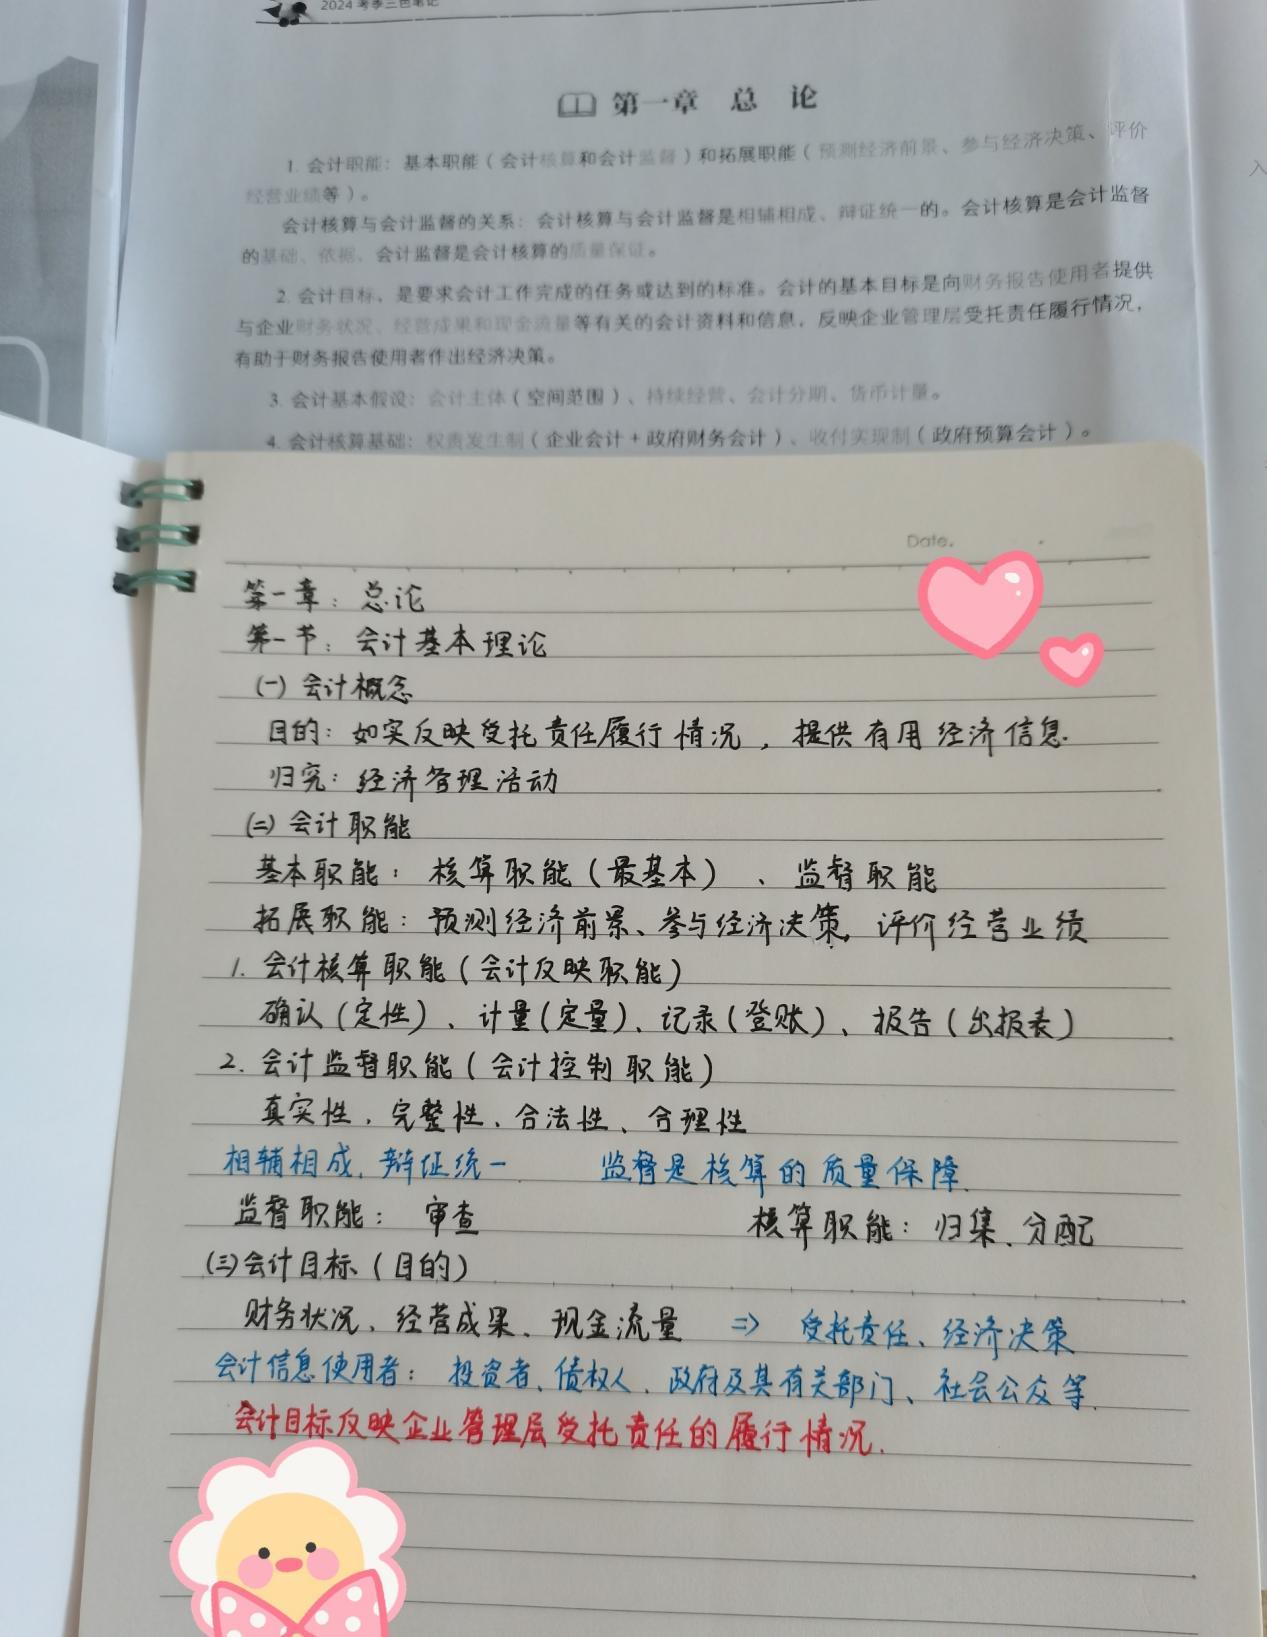 2024 考季三色笔记
第一章 总 论
1. 会计职能：基本职能（会计核算和会计监督）和拓展职能（预测经济前景、参与经济决策、评价
经营业绩等）。
会计核算与会计监督的关系：会计核算与会计监督是相辅相成、辩证统一的。会计核算是会计监督
的基础、依据，会计监督是会计核算的质量保证。
2. 会计目标，是要求会计工作完成的任务或达到的标准。会计的基本目标是向财务报告使用者提供
与企业财务状况、经营成果和现金流量等有关的会计资料和信息，反映企业管理层受托责任履行情况，
有助于财务报告使用者作出经济决策。
3. 会计基本假设：会计主体（空间范围）、持续经营、会计分期、货币计量。
4. 会计核算基础：权责发生制（企业会计+政府财务会计）、收付实现制（政府预算会计）。
入
Date.
第一章：总论
第一节：会计基本理论
(一) 会计概念
目的：如实反映受托责任履行情况，提供有用经济信息.
归究：经济管理活动
(二) 会计职能
基本职能：核算职能（最基本）、监督职能
拓展职能：预测经济前景、参与经济决策, 评价经营业绩
1. 会计核算职能（会计反映职能）
确认（定性）、计量（定量）、记录（登账）、报告（出报表）
2. 会计监督职能（会计控制职能）
真实性、完整性、合法性、合理性
相辅相成、辩证统一 监督是核算的质量保障.
监督职能：审查 核算职能：归集、分配
(三) 会计目标（目的）
财务状况、经营成果、现金流量 => 受托责任、经济决策
会计信息使用者：投资者、债权人、政府及其有关部门、社会公众等.
会计目标反映企业管理层受托责任的履行情况.